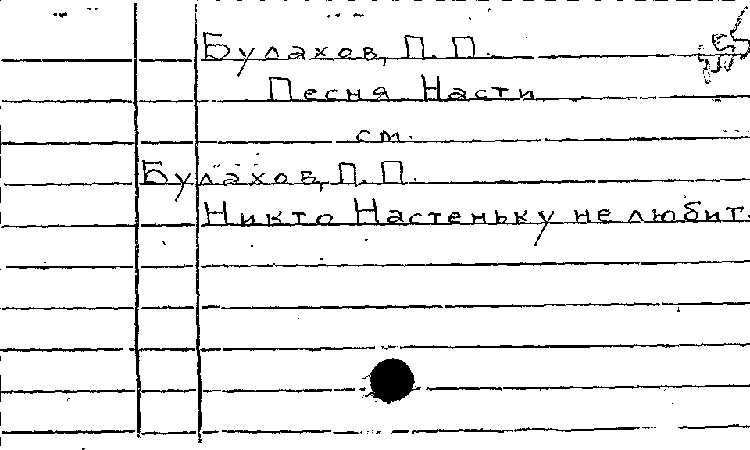 Булахов, П. П.
Песня Насти
см.
Булахов, П. П.
Никто Настеньку не любит.